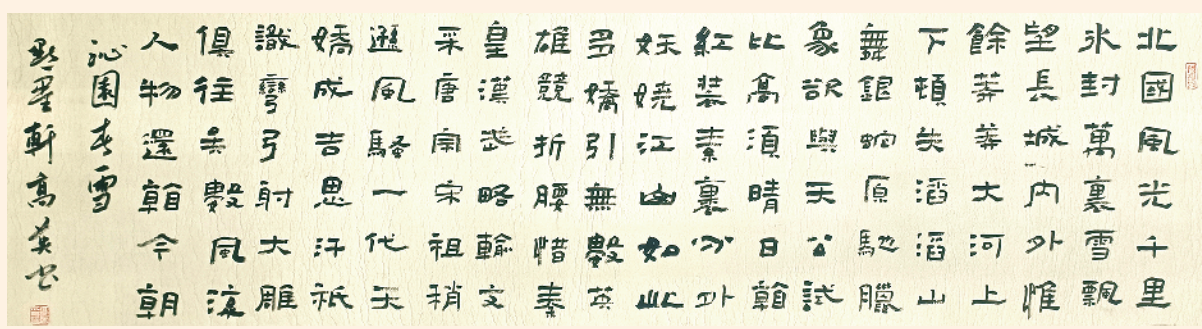 北國風光千里
氷封萬裏雪飄
望長城内外惟
餘莽莽大河上
下頓失滔滔山
舞銀蛇原馳臘
象欲與天公試
比高須晴日看
紅裝素裹分外
妖嬈江山如此
多嬌引無數英
雄競折腰惜秦
皇漢武略輸文
采唐宗宋祖稍
遜風騷一代天
嬌成吉思汗祇
識彎弓射大雕
俱往矣數風流
人物還看今朝
沁園春雪
墨軒高英书